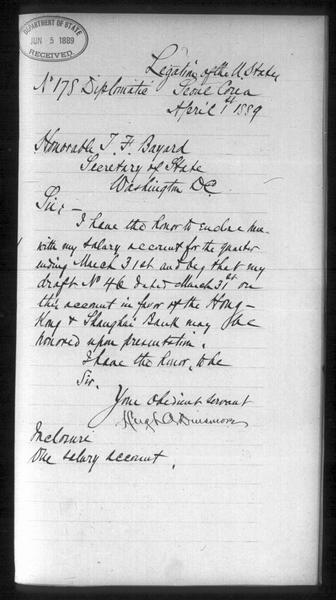 DEPARTMENT OF STATE
JUN 5 1889
RECEIVED
Legation of the U States
No 178 Diplomatic Seoul Corea
April 1st 1889
Honorable T. F. Bayard
Secretary of State
Washington D.C.
Sir,—
I have the honor to enclose here-
with my salary account for the quarter
ending March 31st and beg that my
draft No 46 dated March 31st on
this account in favor of the Hong-
Kong & Shanghai Bank may be
honored upon presentation.
I have the honor, to be
Sir.
Your obedient servant
Hugh A Dinsmore
Inclosure
One salary account.